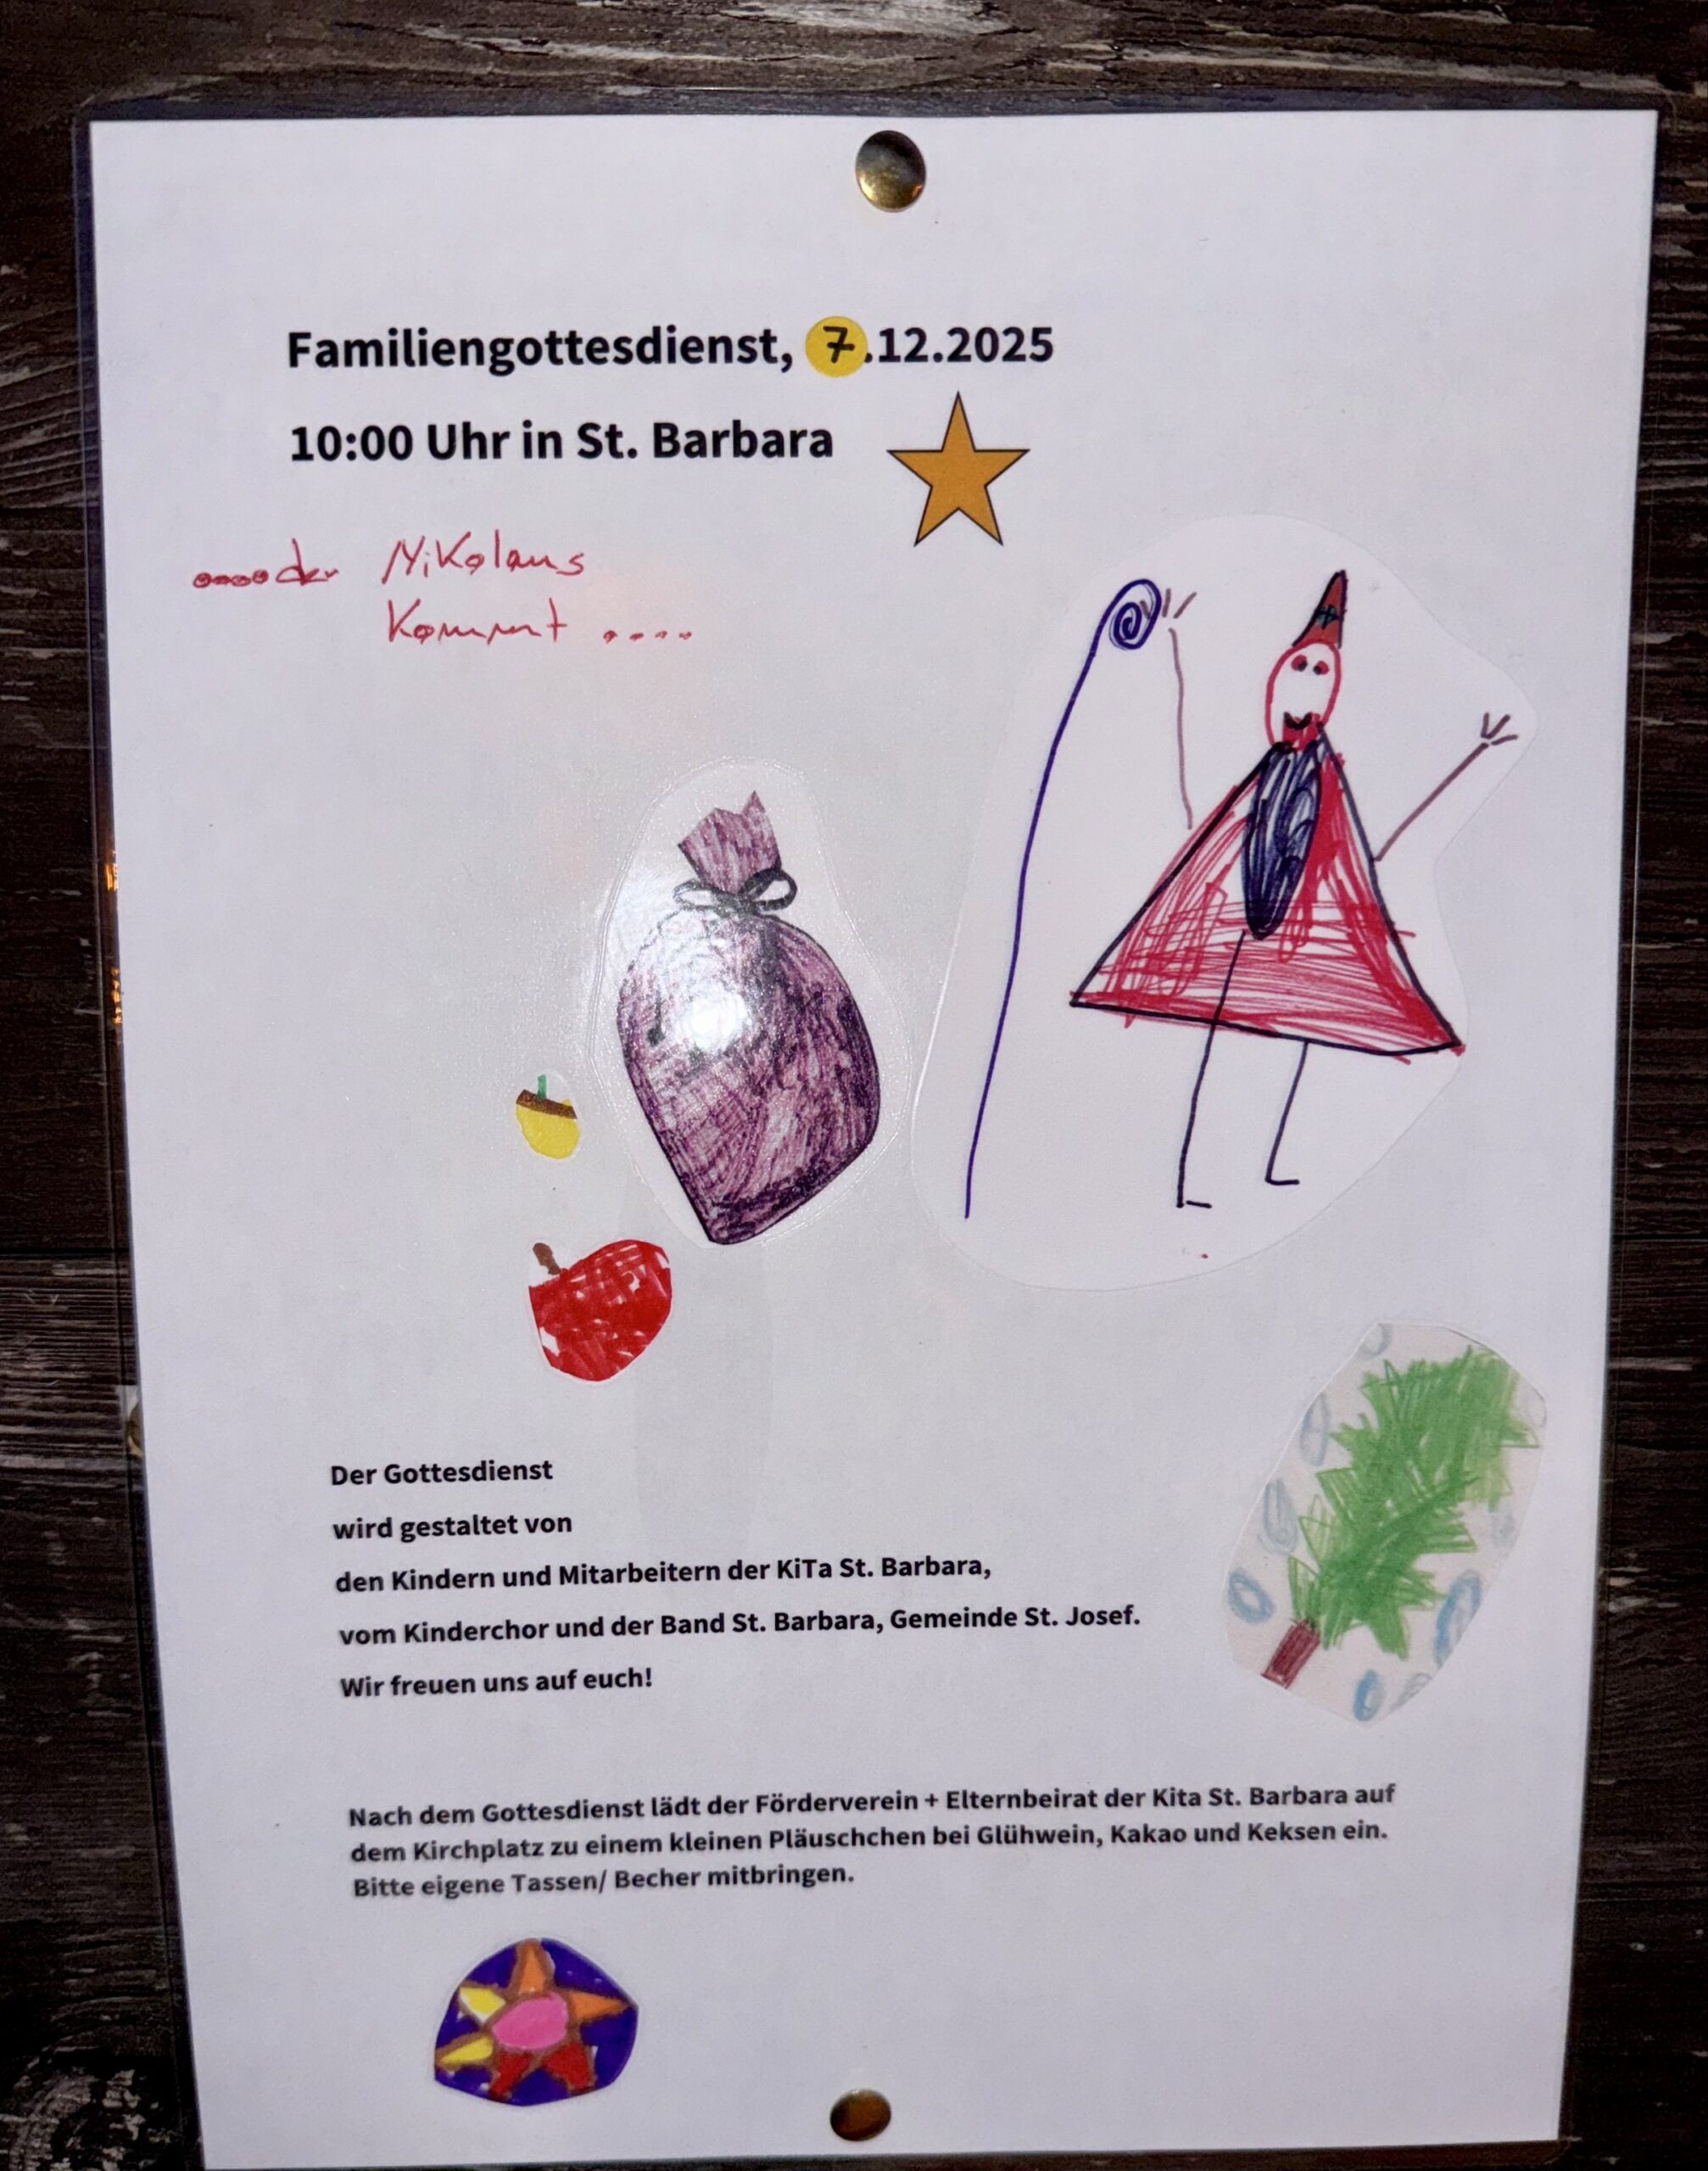 Familiengottesdienst, 7.12.2025
10:00 Uhr in St. Barbara
....der Nikolaus
kommt ....
Der Gottesdienst
wird gestaltet von
den Kindern und Mitarbeitern der KiTa St. Barbara,
vom Kinderchor und der Band St. Barbara, Gemeinde St. Josef.
Wir freuen uns auf euch!
Nach dem Gottesdienst lädt der Förderverein + Elternbeirat der Kita St. Barbara auf
dem Kirchplatz zu einem kleinen Pläuschchen bei Glühwein, Kakao und Keksen ein.
Bitte eigene Tassen/ Becher mitbringen.